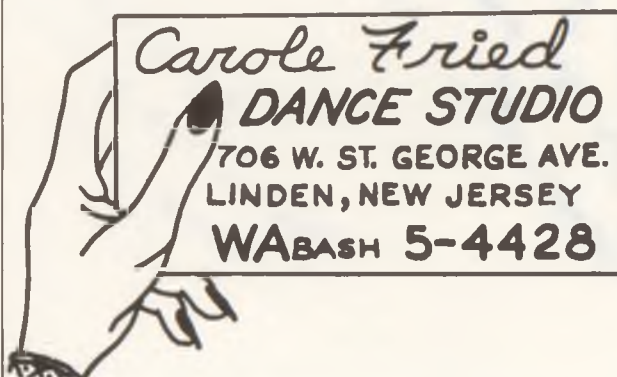 Carole Fried
DANCE STUDIO
706 W. ST. GEORGE AVE.
LINDEN, NEW JERSEY
WABASH 5-4428